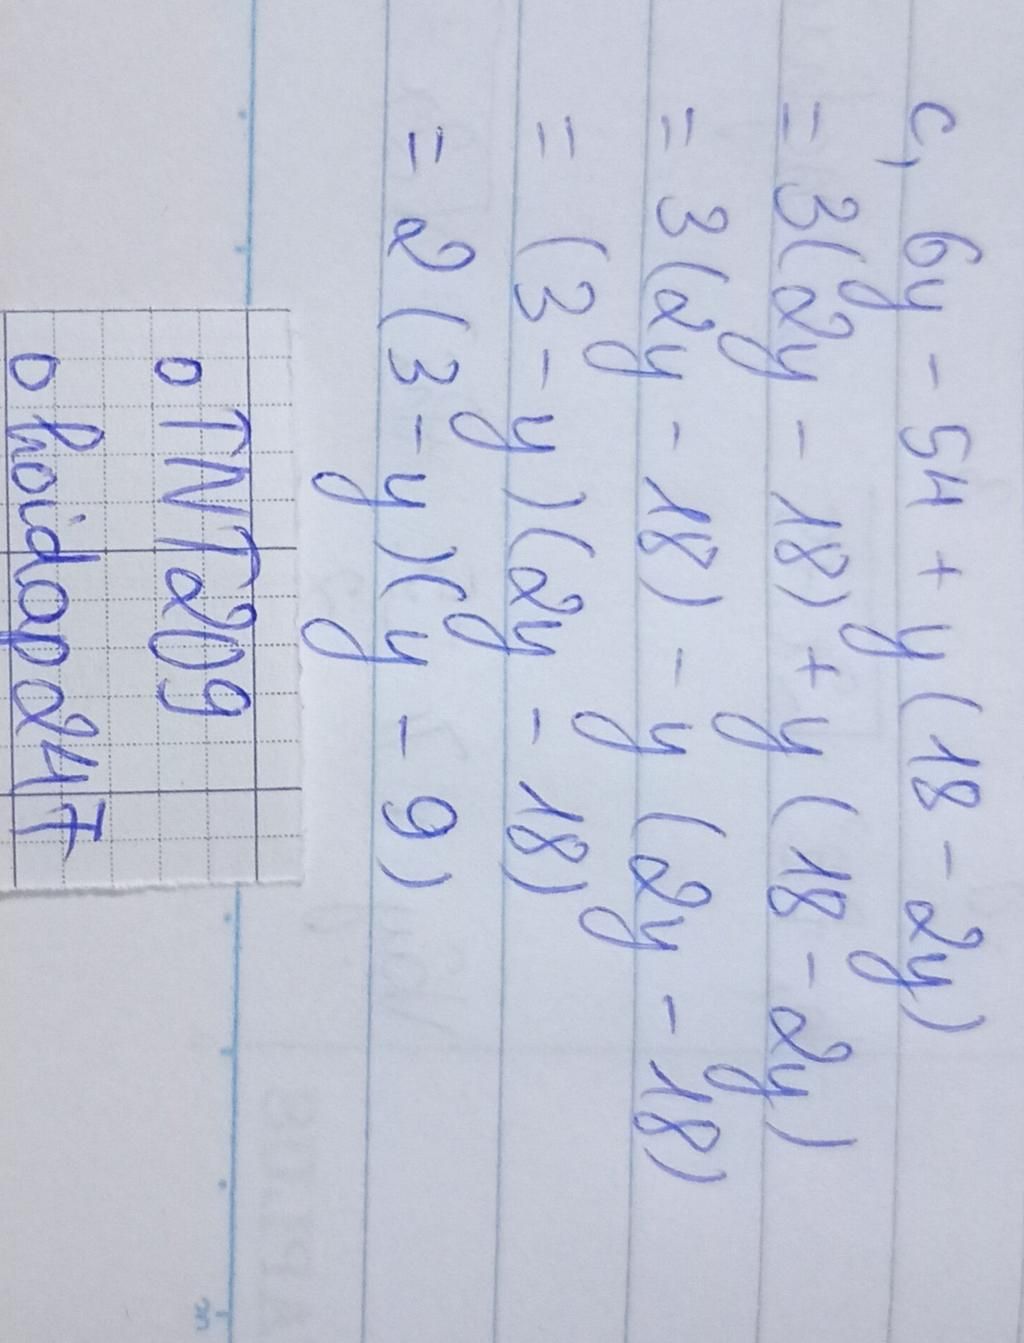 c, 6y - 54 + y(18 - 2y)
= 3(2y - 18) + y(18 - 2y)
= 3(2y - 18) - y(2y - 18)
= (3 - y)(2y - 18)
= 2(3 - y)(y - 9)
o TNT209
o hoidap247